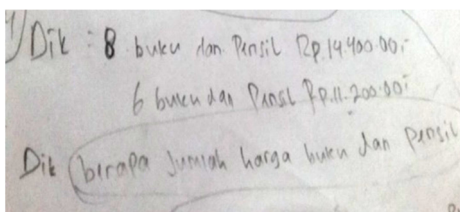 1) Dik : 8 buku dan Pensil Rp.14.400.00,-
6 buku dan Pensil Rp.11.200.00,-
Dik berapa Jumlah harga buku dan pensil